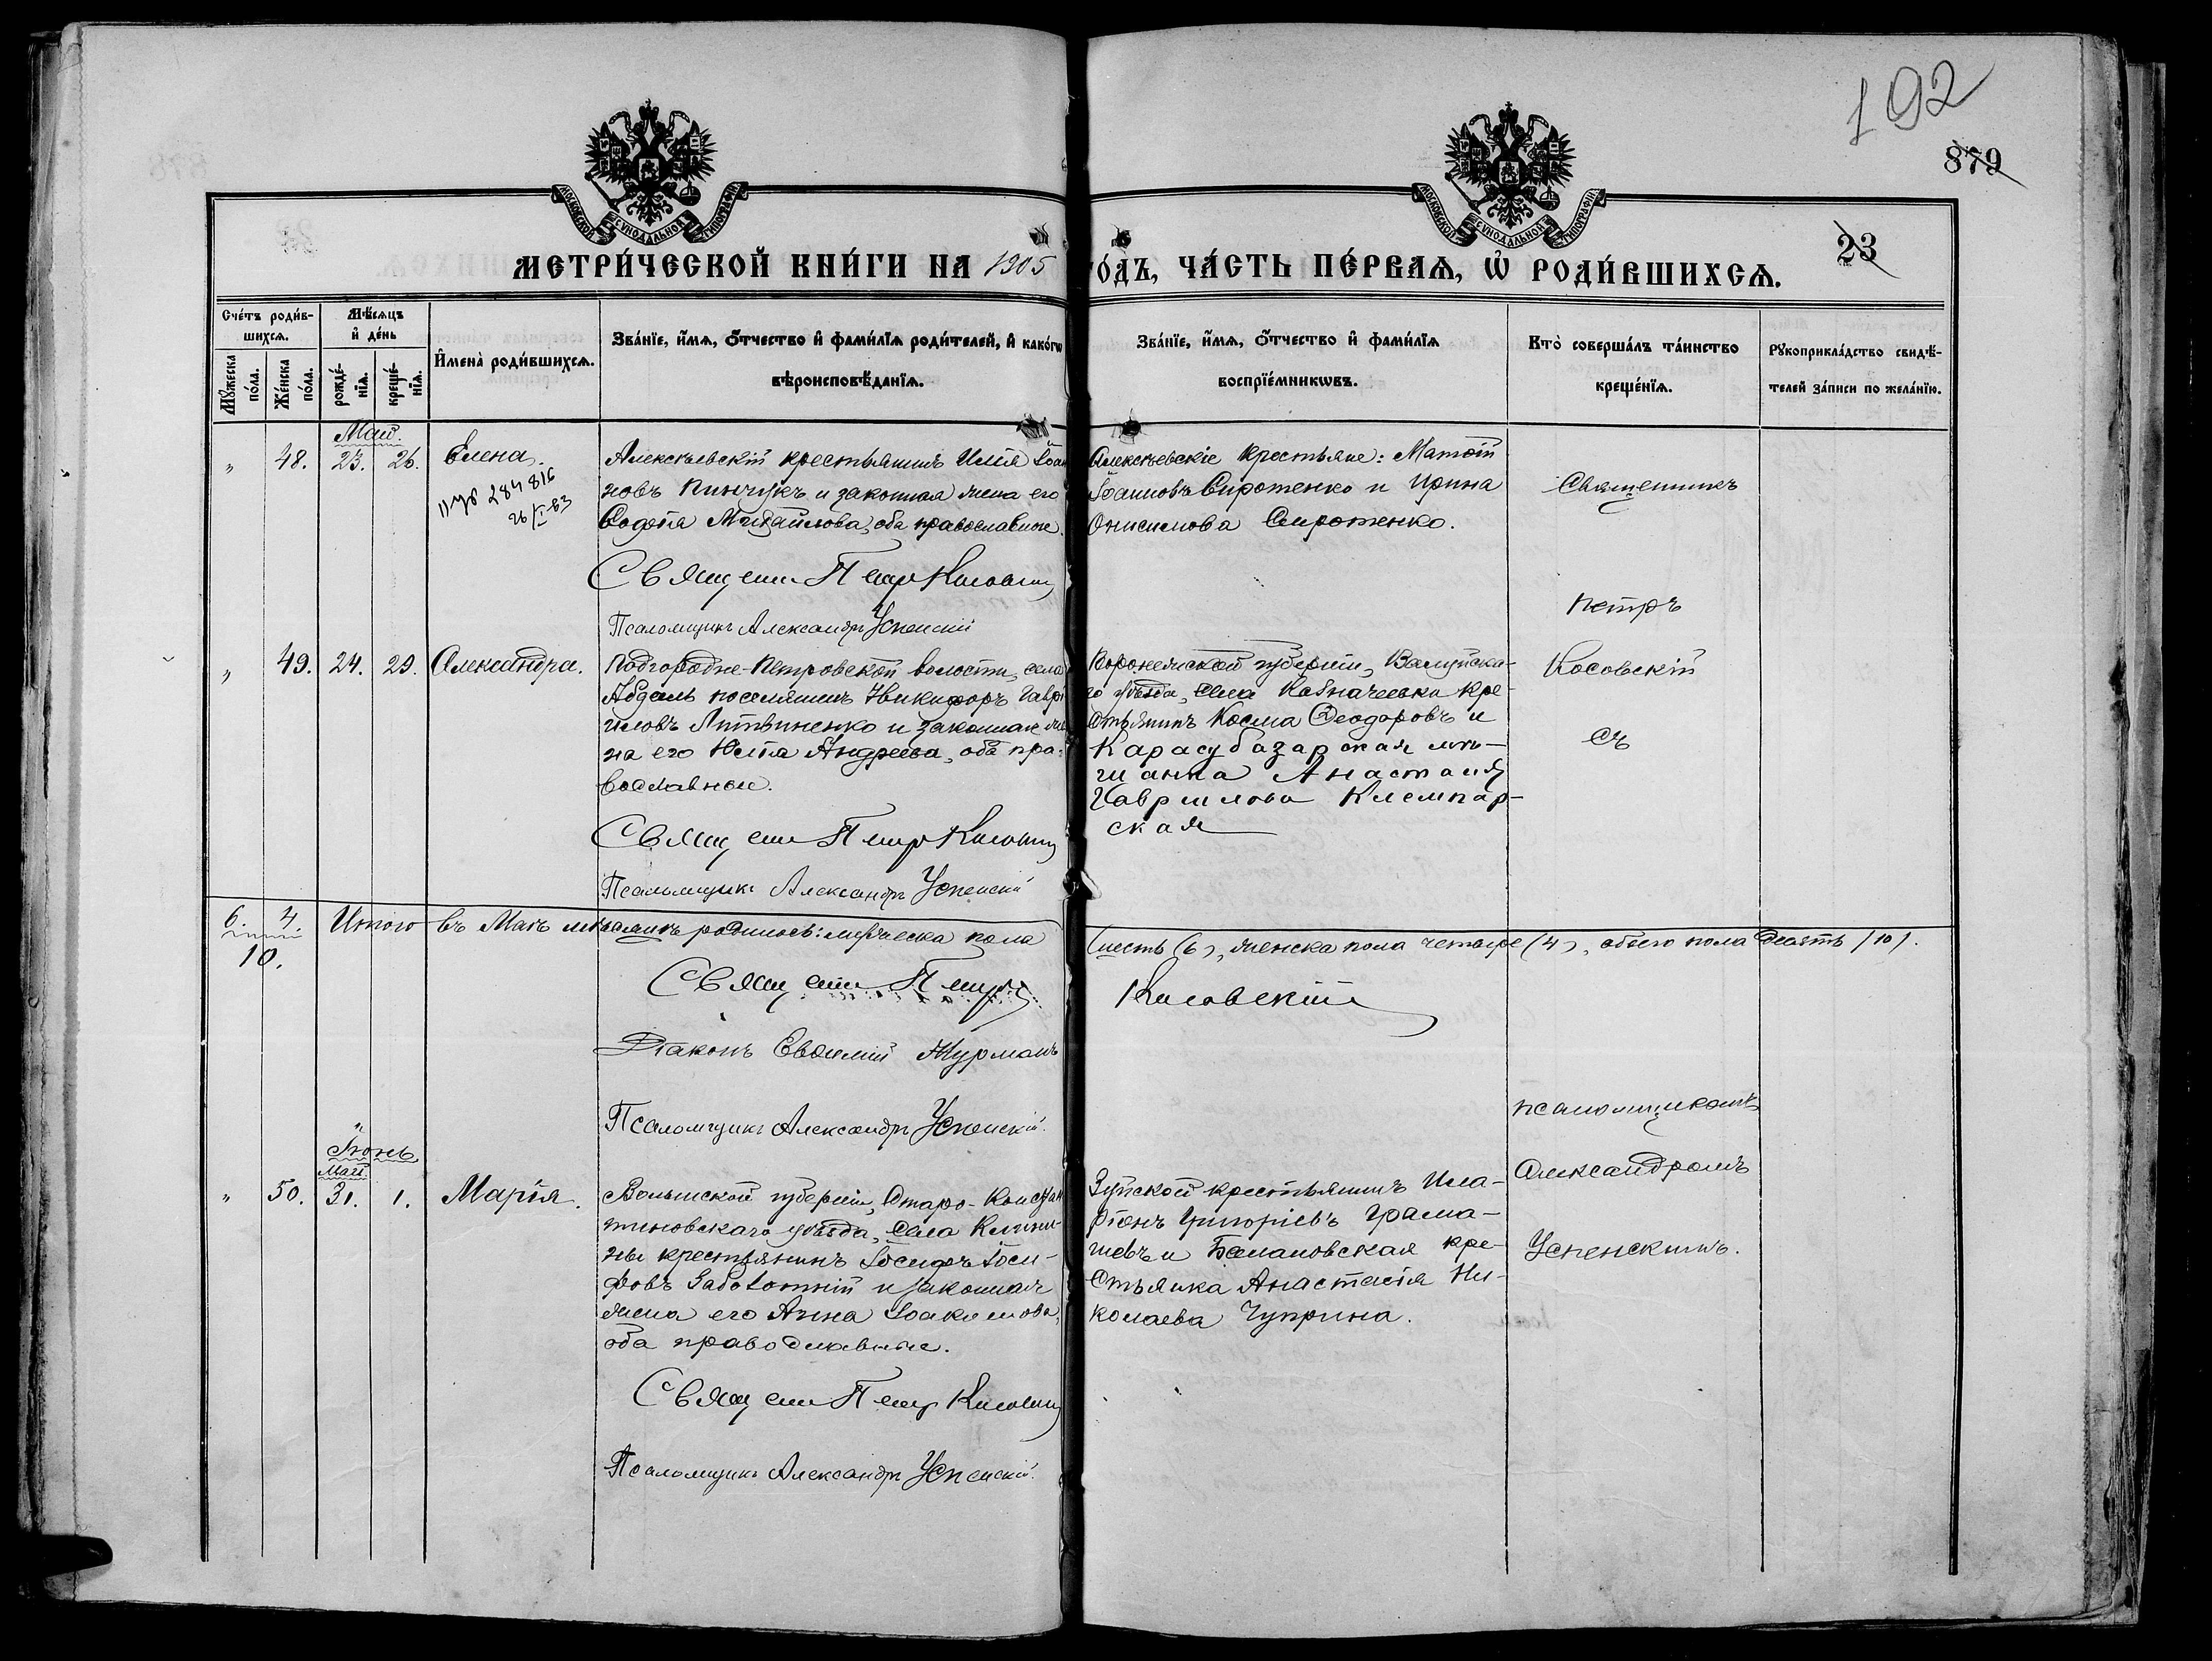 192
879
23
МОСКОВСКОЙ СѴНОДАЛЬНОЙ ТИПОГРАФІИ
МОСКОВСКОЙ СѴНОДАЛЬНОЙ ТИПОГРАФІИ
МЕТРИ́ЧЕСКОЙ КНИ́ГИ НА 1905
ГО́ДЪ, ЧА́СТЬ ПЕ́РВАѦ, Ѡ҆ РОДИ́ВШИХСѦ.
Сче́тъ роди́в-
шихсѧ.
Мꙋ́жеска по́ла.
Же́нска по́ла.
Мѣ́сѧцъ
и҆ де́нь
рожде́-
нїѧ.
креще́-
нїѧ.
И҆мена̀ роди́вшихсѧ.
Зва́нїе, и҆́мѧ, ѻ҆́тчество и҆ фами́лїѧ роди́телей, и҆ како́гѡ
вѣроисповѣ́данїѧ.
Зва́нїе, и҆́мѧ, ѻ҆́тчество и҆ фами́лїѧ
воспрїе́мникѡвъ.
Кто̀ соверша́лъ та́инство
креще́нїѧ.
Рꙋкоприкла́дство свидѣ́-
телей за́писи по жела́нїю.
Май.
„ 48. 23. 26. Елена.
284816
26/X-83
Алексѣевскій крестьянинъ Илія Іоан
новъ Пинчукъ и законная жена его
Евдокія Михайлова, оба православные.
Священ Петръ Косовскій
Псаломщикъ Александръ Успенскій
Алексѣевскіе крестьяне: Матѳій
Іоанновъ Сиротенко и Ирина
Онисимова Сиротенко.
Священникъ
Петръ
Косовскій
съ
„ 49. 24. 29. Александра.
Подгородне-Петровской волости, села
Абдаль поселянинъ Никифоръ Гаврі
иловъ Литвиненко и законная же
на его Юлія Андреева, оба пра-
вославные.
Священ Петръ Косовскій
Псаломщикъ Александръ Успенскій
Воронежской губерніи, Валуйска-
го уѣзда, села Казначеевки кре-
стьянинъ Косма Ѳеодоровъ и
Карасубазарская мѣ-
щанка Анастасія
Гавриилова Клемпар-
ская
6. 4. Итого въ Маѣ мѣсяцѣ родилось: мужеска пола
шесть (6), женска пола четыре (4), обоего пола десять (10).
10.
Священ Петръ
Косовскій
Діаконъ Евѳимій Журманъ
Псаломщикъ Александръ Успенскій.
псаломщикомъ
Александромъ
Успенскимъ.
Іюнь
Май.
„ 50. 31. 1. Марія.
Волынской губерніи, Старо-Констан
тиновскаго уѣзда, села Клини-
ны крестьянинъ Іосифъ Іоси-
фовъ Заболотній и законная
жена его Анна Іоакимова,
оба православные.
Священ Петръ Косовскій
Псаломщикъ Александръ Успенскій.
Зуйской крестьянинъ Ила-
ріонъ Григоріевъ Грама-
и Балановская кре-
стьянка Анастасія Ни-
колаева Чуприна.